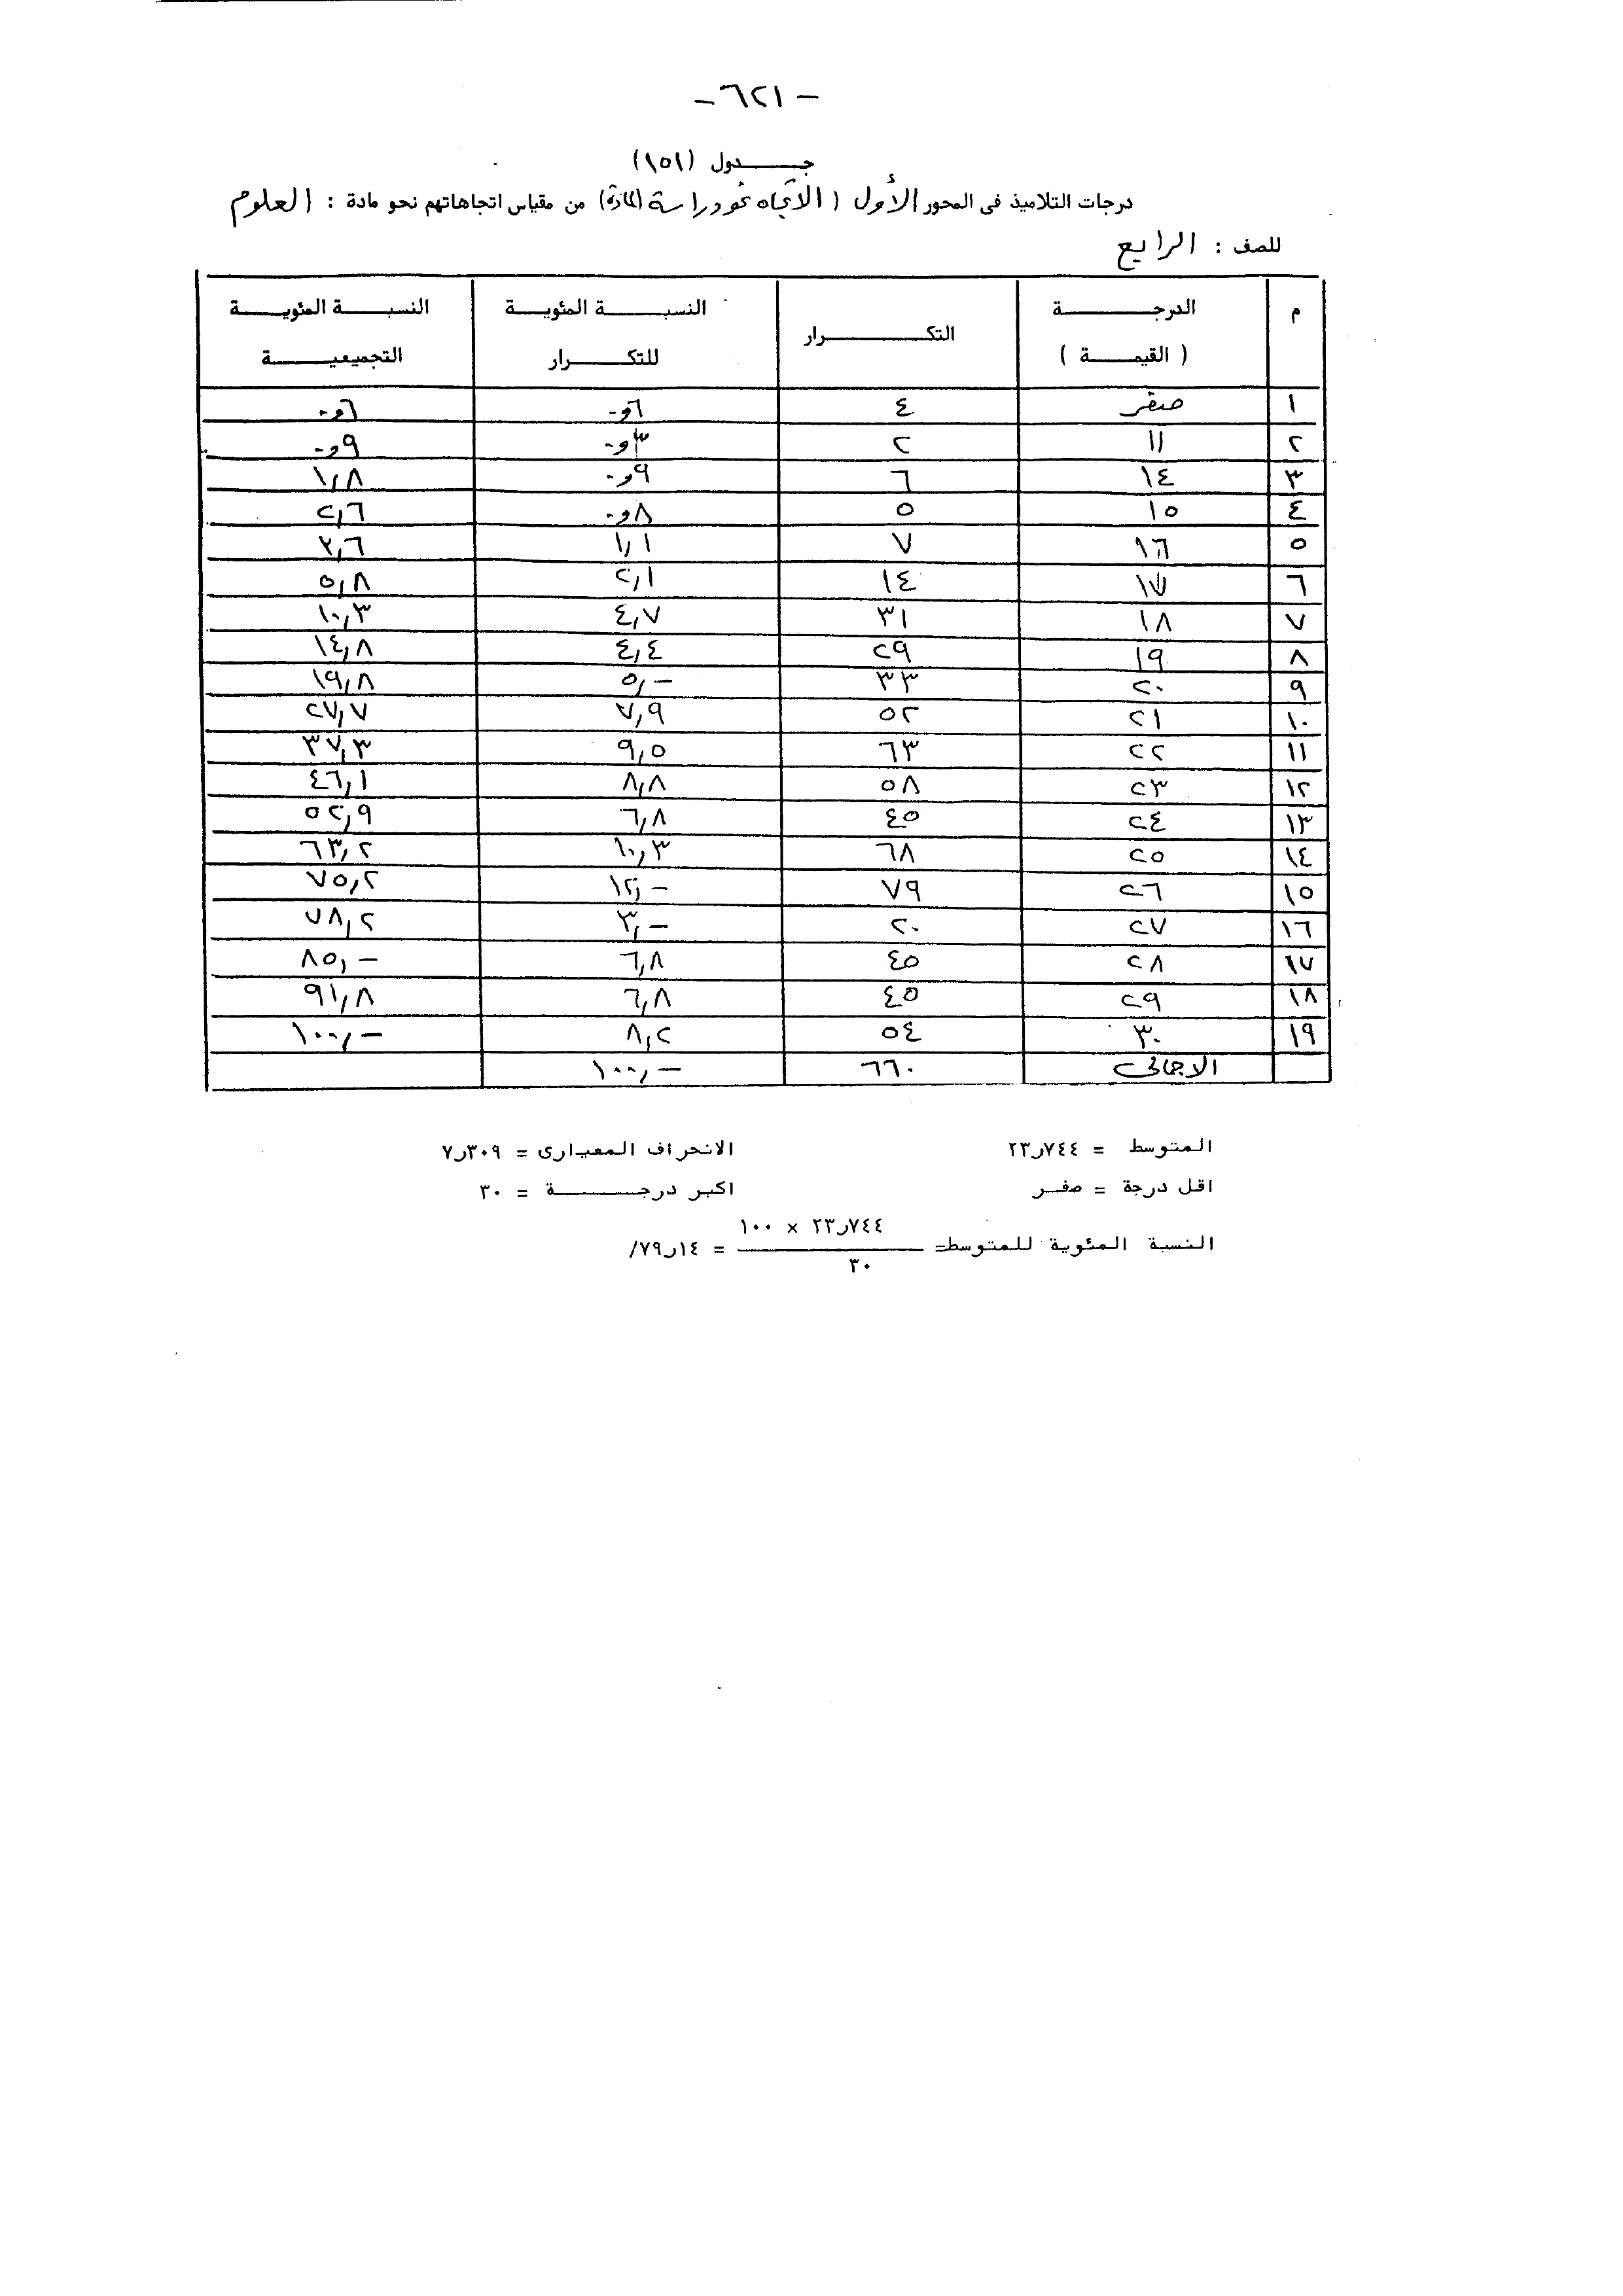 - ٦٢١ -
جدول (١٥١)
درجات التلاميذ فى المحور الأول (الاتجاه نحو دراسة المادة) من مقياس اتجاهاتهم نحو مادة : العلوم
للصف : الرابع
م | الدرجة ( القيمة ) | التكرار | النسبة المئوية للتكرار | النسبة المئوية التجميعية
١ | صفر | ٤ | ٦و- | ٦و-
٢ | ١١ | ٢ | ٣و- | ٩و-
٣ | ١٤ | ٦ | ٩و- | ١,٨
٤ | ١٥ | ٥ | ٨و- | ٢,٦
٥ | ١٦ | ٧ | ١,١ | ٣,٦
٦ | ١٧ | ١٤ | ٢,١ | ٥,٨
٧ | ١٨ | ٣١ | ٤,٧ | ١٠,٣
٨ | ١٩ | ٢٩ | ٤,٤ | ١٤,٨
٩ | ٢٠ | ٣٣ | ٥,- | ١٩,٨
١٠ | ٢١ | ٥٢ | ٧,٩ | ٢٧,٧
١١ | ٢٢ | ٦٣ | ٩,٥ | ٣٧,٣
١٢ | ٢٣ | ٥٨ | ٨,٨ | ٤٦,١
١٣ | ٢٤ | ٤٥ | ٦,٨ | ٥٢,٩
١٤ | ٢٥ | ٦٨ | ١٠,٣ | ٦٣,٢
١٥ | ٢٦ | ٧٩ | ١٢,- | ٧٥,٢
١٦ | ٢٧ | ٢٠ | ٣,- | ٧٨,٢
١٧ | ٢٨ | ٤٥ | ٦,٨ | ٨٥,-
١٨ | ٢٩ | ٤٥ | ٦,٨ | ٩١,٨
١٩ | ٣٠ | ٥٤ | ٨,٢ | ١٠٠,-
الاجمالى | ٦٦٠ | ١٠٠,-
المتوسط = ٢٣ر٧٤٤ الانحراف المعيارى = ٧ر٣٠٩
اقل درجة = صفر اكبر درجة = ٣٠
٢٣ر٧٤٤ × ١٠٠
النسبة المئوية للمتوسط = = ٧٩ر١٤/
٣٠